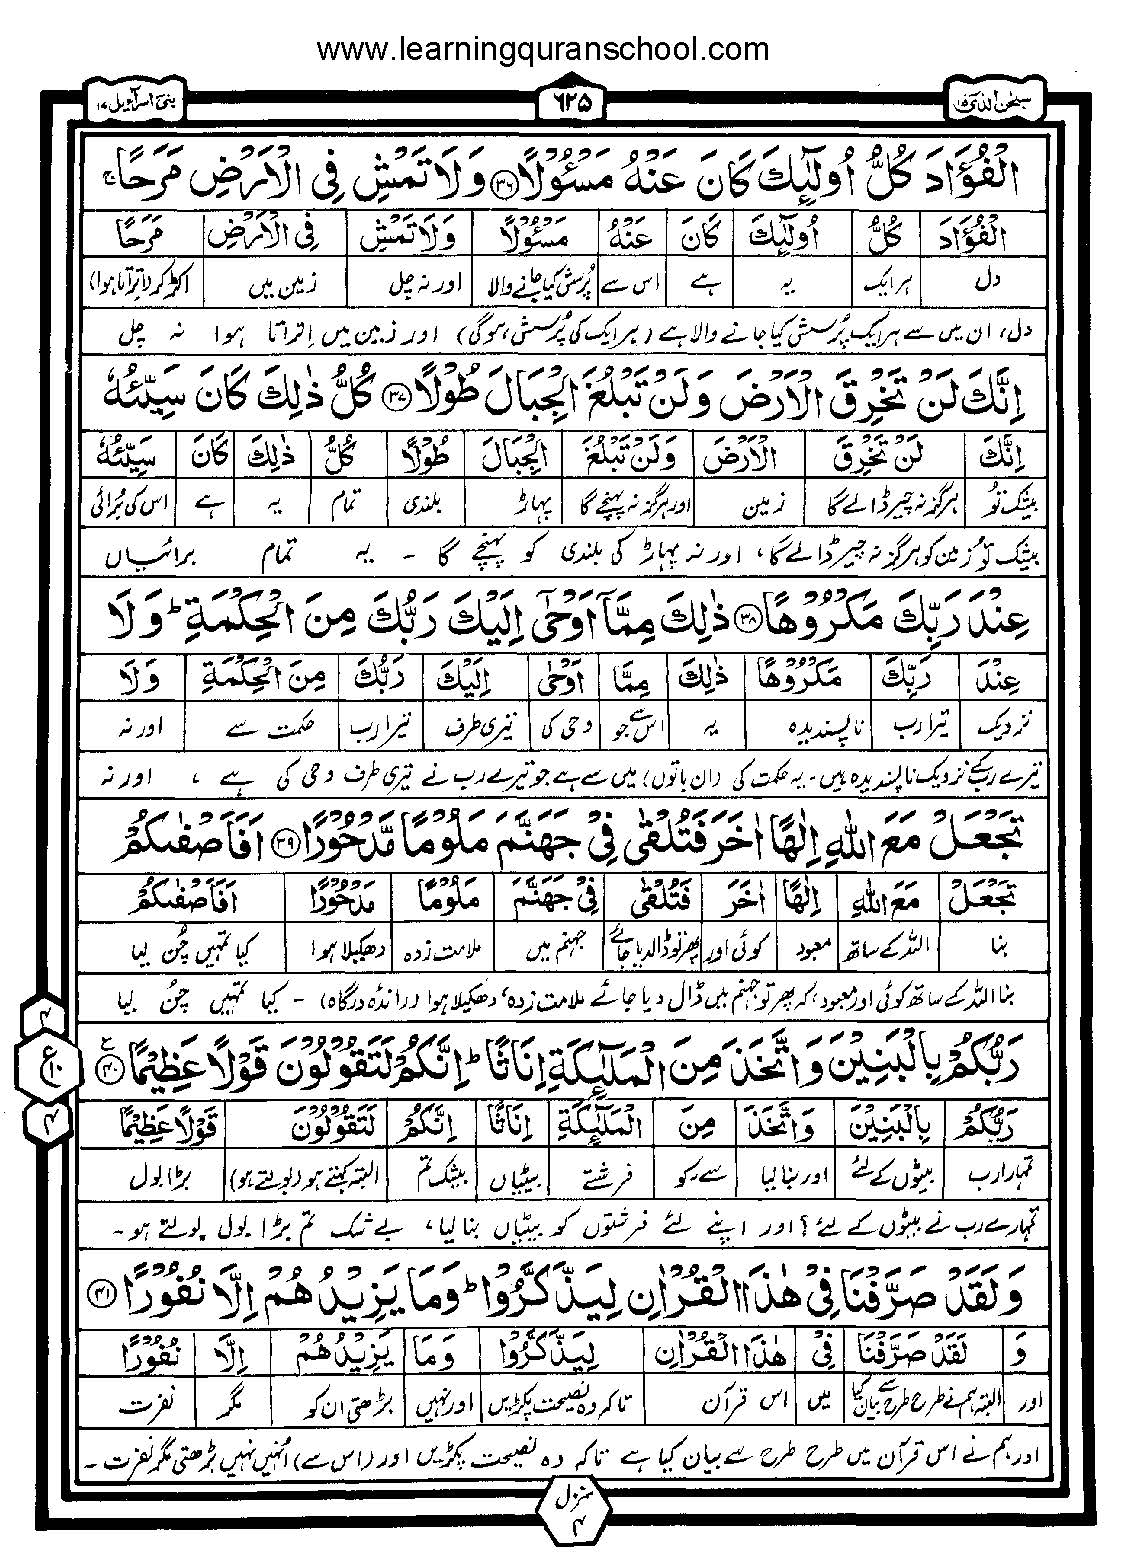 www.learningquranschool.com
سبحٰن الذی ۱۵
۶۲۵
بنی اسرآءیل ۱۷
الْفُؤَادَ كُلُّ اُولٰٓئِكَ كَانَ عَنْهُ مَسْـُٔوْلًا ۳۶ وَلَا تَمْشِ فِی الْاَرْضِ مَرَحًا ۚ
الْفُؤَادَ كُلُّ اُولٰٓئِكَ كَانَ عَنْهُ مَسْـُٔوْلًا وَلَا تَمْشِ فِی الْاَرْضِ مَرَحًا
دل ہر ایک یہ ہے اس سے پُرسش کیا جانے والا اور نہ چل زمین میں اکڑ کر (اتراتا ہوا)
دل، ان میں سے ہر ایک پُرسش کیا جانے والا ہے (ہر ایک کی پُرسش ہوگی) اور زمین میں اِتراتا ہوا نہ چل
اِنَّكَ لَنْ تَخْرِقَ الْاَرْضَ وَلَنْ تَبْلُغَ الْجِبَالَ طُوْلًا ۳۷ كُلُّ ذٰلِكَ كَانَ سَیِّئُهٗ
اِنَّكَ لَنْ تَخْرِقَ الْاَرْضَ وَلَنْ تَبْلُغَ الْجِبَالَ طُوْلًا كُلُّ ذٰلِكَ كَانَ سَیِّئُهٗ
بیشک تُو ہرگز نہ چیر ڈالے گا زمین اور ہرگز نہ پہنچے گا پہاڑ بلندی تمام یہ ہے اس کی بُرائی
بیشک تو زمین کو ہرگز نہ چیر ڈالے گا، اور نہ پہاڑ کی بلندی کو پہنچے گا - یہ تمام برائیاں
عِنْدَ رَبِّكَ مَكْرُوْهًا ۳۸ ذٰلِكَ مِمَّاۤ اَوْحٰۤی اِلَیْكَ رَبُّكَ مِنَ الْحِكْمَةِ ؕ وَلَا
عِنْدَ رَبِّكَ مَكْرُوْهًا ذٰلِكَ مِمَّا اَوْحٰۤی اِلَیْكَ رَبُّكَ مِنَ الْحِكْمَةِ وَلَا
نزدیک تیرا رب ناپسندیدہ یہ اس سے جو وحی کی تیری طرف تیرا رب حکمت سے اور نہ
تیرے رب کے نزدیک ناپسندیدہ ہیں۔ یہ حکمت کی (ان باتوں) میں سے ہے جو تیرے رب نے تیری طرف وحی کی ہے ، اور نہ
تَجْعَلْ مَعَ اللّٰهِ اِلٰهًا اٰخَرَ فَتُلْقٰی فِیْ جَهَنَّمَ مَلُوْمًا مَّدْحُوْرًا ۳۹ اَفَاَصْفٰىكُمْ
تَجْعَلْ مَعَ اللّٰهِ اِلٰهًا اٰخَرَ فَتُلْقٰی فِیْ جَهَنَّمَ مَلُوْمًا مَدْحُوْرًا اَفَاَصْفٰىكُمْ
بنا اللہ کے ساتھ معبود کوئی اور پھر تو ڈالدیا جائے جہنم میں ملامت زدہ دھکیلا ہوا کیا تمہیں چُن لیا
بنا اللہ کے ساتھ کوئی اور معبود، کہ پھر تو جہنم میں ڈال دیا جائے ملامت زدہ، دھکیلا ہوا (راندۂ درگاہ) - کیا تمہیں چُن لیا
رَبُّكُمْ بِالْبَنِیْنَ وَاتَّخَذَ مِنَ الْمَلٰٓئِكَةِ اِنَاثًا ؕ اِنَّكُمْ لَتَقُوْلُوْنَ قَوْلًا عَظِیْمًا ۴۰ ع
۴
ع ۱۰
۴
رَبُّكُمْ بِالْبَنِیْنَ وَاتَّخَذَ مِنَ الْمَلٰٓئِكَةِ اِنَاثًا اِنَّكُمْ لَتَقُوْلُوْنَ قَوْلًا عَظِیْمًا
تمہارا رب بیٹوں کے لئے اور بنا لیا سے۔کو فرشتے بیٹیاں بیشک تم البتہ کہتے ہو (بولتے ہو) بڑا بول
تمہارے رب نے بیٹوں کے لئے؟ اور اپنے لئے فرشتوں کو بیٹیاں بنا لیا، بے شک تم بڑا بول بولتے ہو۔
وَلَقَدْ صَرَّفْنَا فِیْ هٰذَا الْقُرْاٰنِ لِیَذَّكَّرُوْا ؕ وَمَا یَزِیْدُهُمْ اِلَّا نُفُوْرًا ۴۱
وَ لَقَدْ صَرَّفْنَا فِیْ هٰذَا الْقُرْاٰنِ لِیَذَّكَّرُوْا وَمَا یَزِیْدُهُمْ اِلَّا نُفُوْرًا
اور البتہ ہم نے طرح طرح سے بیان کیا میں اس قرآن تاکہ وہ نصیحت پکڑیں اور نہیں بڑھتی ان کو مگر نفرت
اور ہم نے اس قرآن میں طرح طرح سے بیان کیا ہے تاکہ وہ نصیحت پکڑیں اور (اس سے) اُنہیں نہیں بڑھتی مگر نفرت ۔
منزل ۴